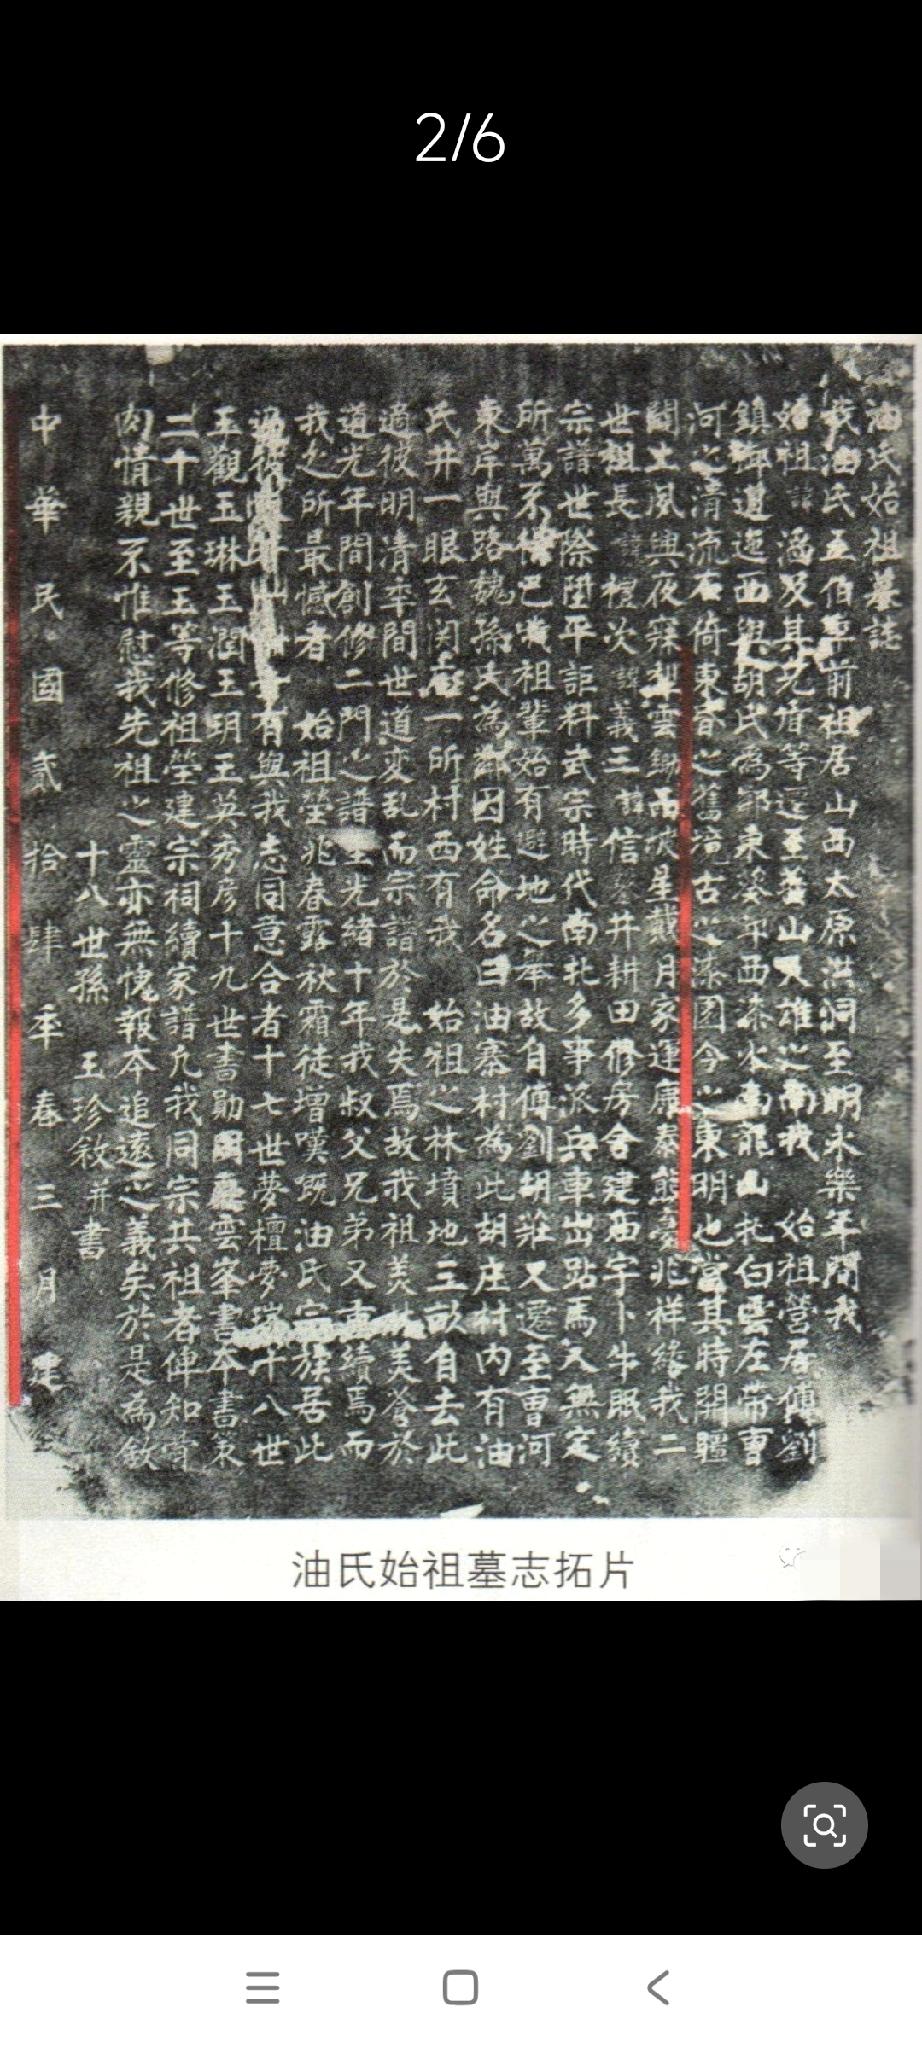 2/6
油氏始祖墓誌
我油氏五伯年前祖居山西太原洪洞至明永樂年間我
始祖諱 及其兄 等遷至 山 之南我 始祖營居傅劉
鎮 西與胡氏為鄰東 西 水南 山北白雲左帶曹
河之清流右倚東 之舊 古之漆園今之東明也當其時開疆
闢土風興夜寐犁雲鋤雨 星戴月家運康泰熊 兆祥緣我二
世祖長諱 禮次諱義三諱信 井耕田修房舍建廟宇卜牛眠續
宗譜世際昇平詎料武宗時代南北多事派兵車出點馬人無定
所萬不 已 祖輩始有避地之舉故自傅劉胡莊又遷至曹河
東岸與路魏孫 為鄰因姓命名曰油寨村為此胡庄村內有油
氏井一眼玄関廟一所村西有我 始祖之林墳地三畝自去此
適彼明清 間世道変乱而宗譜於是失焉故我祖美 美 於
道光年間創修二門之譜至光緒十年我叔父兄弟又重續焉而
我之所最憾者 始祖塋兆春露秋霜徒增嘆既油氏宗族居此
有與我志同意合者十七世夢檀夢瑞十八世
玉觀玉琳玉潤玉玥玉英秀彥十九世書勛 雲峯書本書東
二十世至玉等修祖塋建宗祠續家譜凡我同宗共祖者俾知骨
肉情親不惟慰我先祖之靈亦無愧報本追遠之義矣於是為敘
十八世孫 玉珍敘并書
中華民國貳拾肆年春三月建
油氏始祖墓志拓片